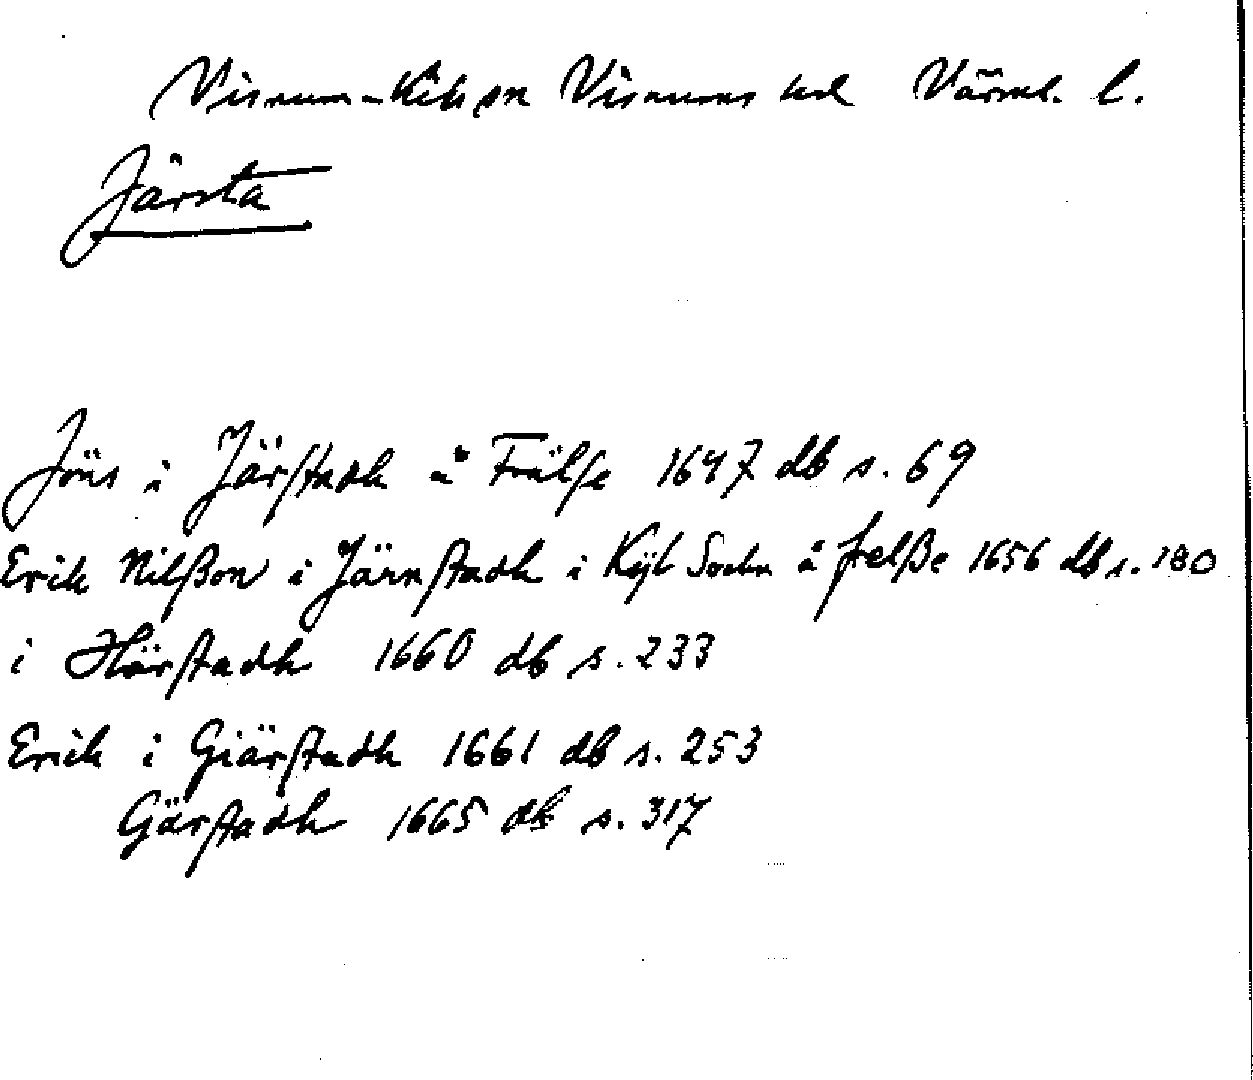 Visnum-Kils sn Visnums hd Värml. l.
Järsta
Jöns i Järstadh å Frälse 1647 db s. 69
Erik Nilßon i Järnstadh i Kijl Sochn å frelße 1656 db s. 180
i Hiärstadh 1660 db s. 233
Erich i Giärstadh 1661 db s. 253
Gärstadh 1665 db s. 317